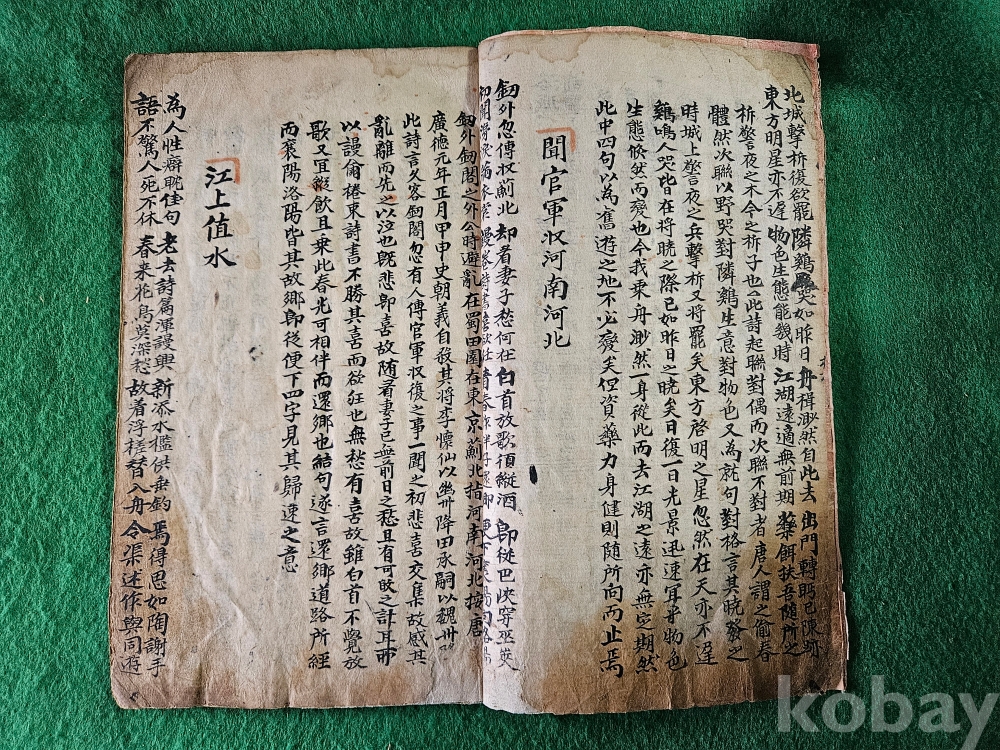 北城擊柝復欲罷 隣鷄哭如昨日 舟楫渺然自此去 出門轉眄已陳迹
東方明星亦不遲 物色生態能幾時 江湖遠適無前期 藥餌扶吾隨所之
柝警夜之木今之柝子也此詩起聯對偶而次聯不對者唐人謂之偷春
體然次聯以野哭對隣鷄生意對物色又為就句對格言其曉發之
時城上警夜之兵擊柝又將罷矣東方啓明之星忽然在天亦不遲
鷄鳴人哭皆在將曉之際已如昨日之曉矣日復一日光景迅速宜乎物色
生態倐然而變也今我乘舟渺然一身從此而去江湖之遠亦無定期然
此中四句以為舊遊之地不必變矣但資藥力身健則隨所向而止焉
聞官軍収河南河北
釼外忽傳収薊北 却看妻子愁何在 白首放歌須縱酒 即從巴峽穿巫峽
初聞涕淚滿衣裳 漫卷詩書喜欲狂 青春作伴好還鄉
釼外釼閣之外公時避亂在蜀田園在東京薊北指河南河北按唐
廣德元年正月甲申史朝義自殺其將李懷仙以幽州降田承嗣以魏州降
此詩言久客釼閣忽有人傳官軍収復之事一聞之初悲喜交集故感其
亂離而先之以泣也旣悲即喜故随看妻子已無前日之愁且有可歌之計耳而
以謾俻捲束詩書不勝其喜而欲狂也無愁有喜故雖白首不覺放
歌又冝縱飮且乗此春光可相伴而還鄉也結句遂言還鄉道路所經
而襄陽洛陽皆其故鄉即從便下四字見其歸速之意
江上值水
為人性癖耽佳句 老去詩篇渾謾興 新添水檻供垂釣 焉得思如陶謝手
語不驚人死不休 春来花鳥莫深愁 故着浮槎替入舟 令渠述作與同遊